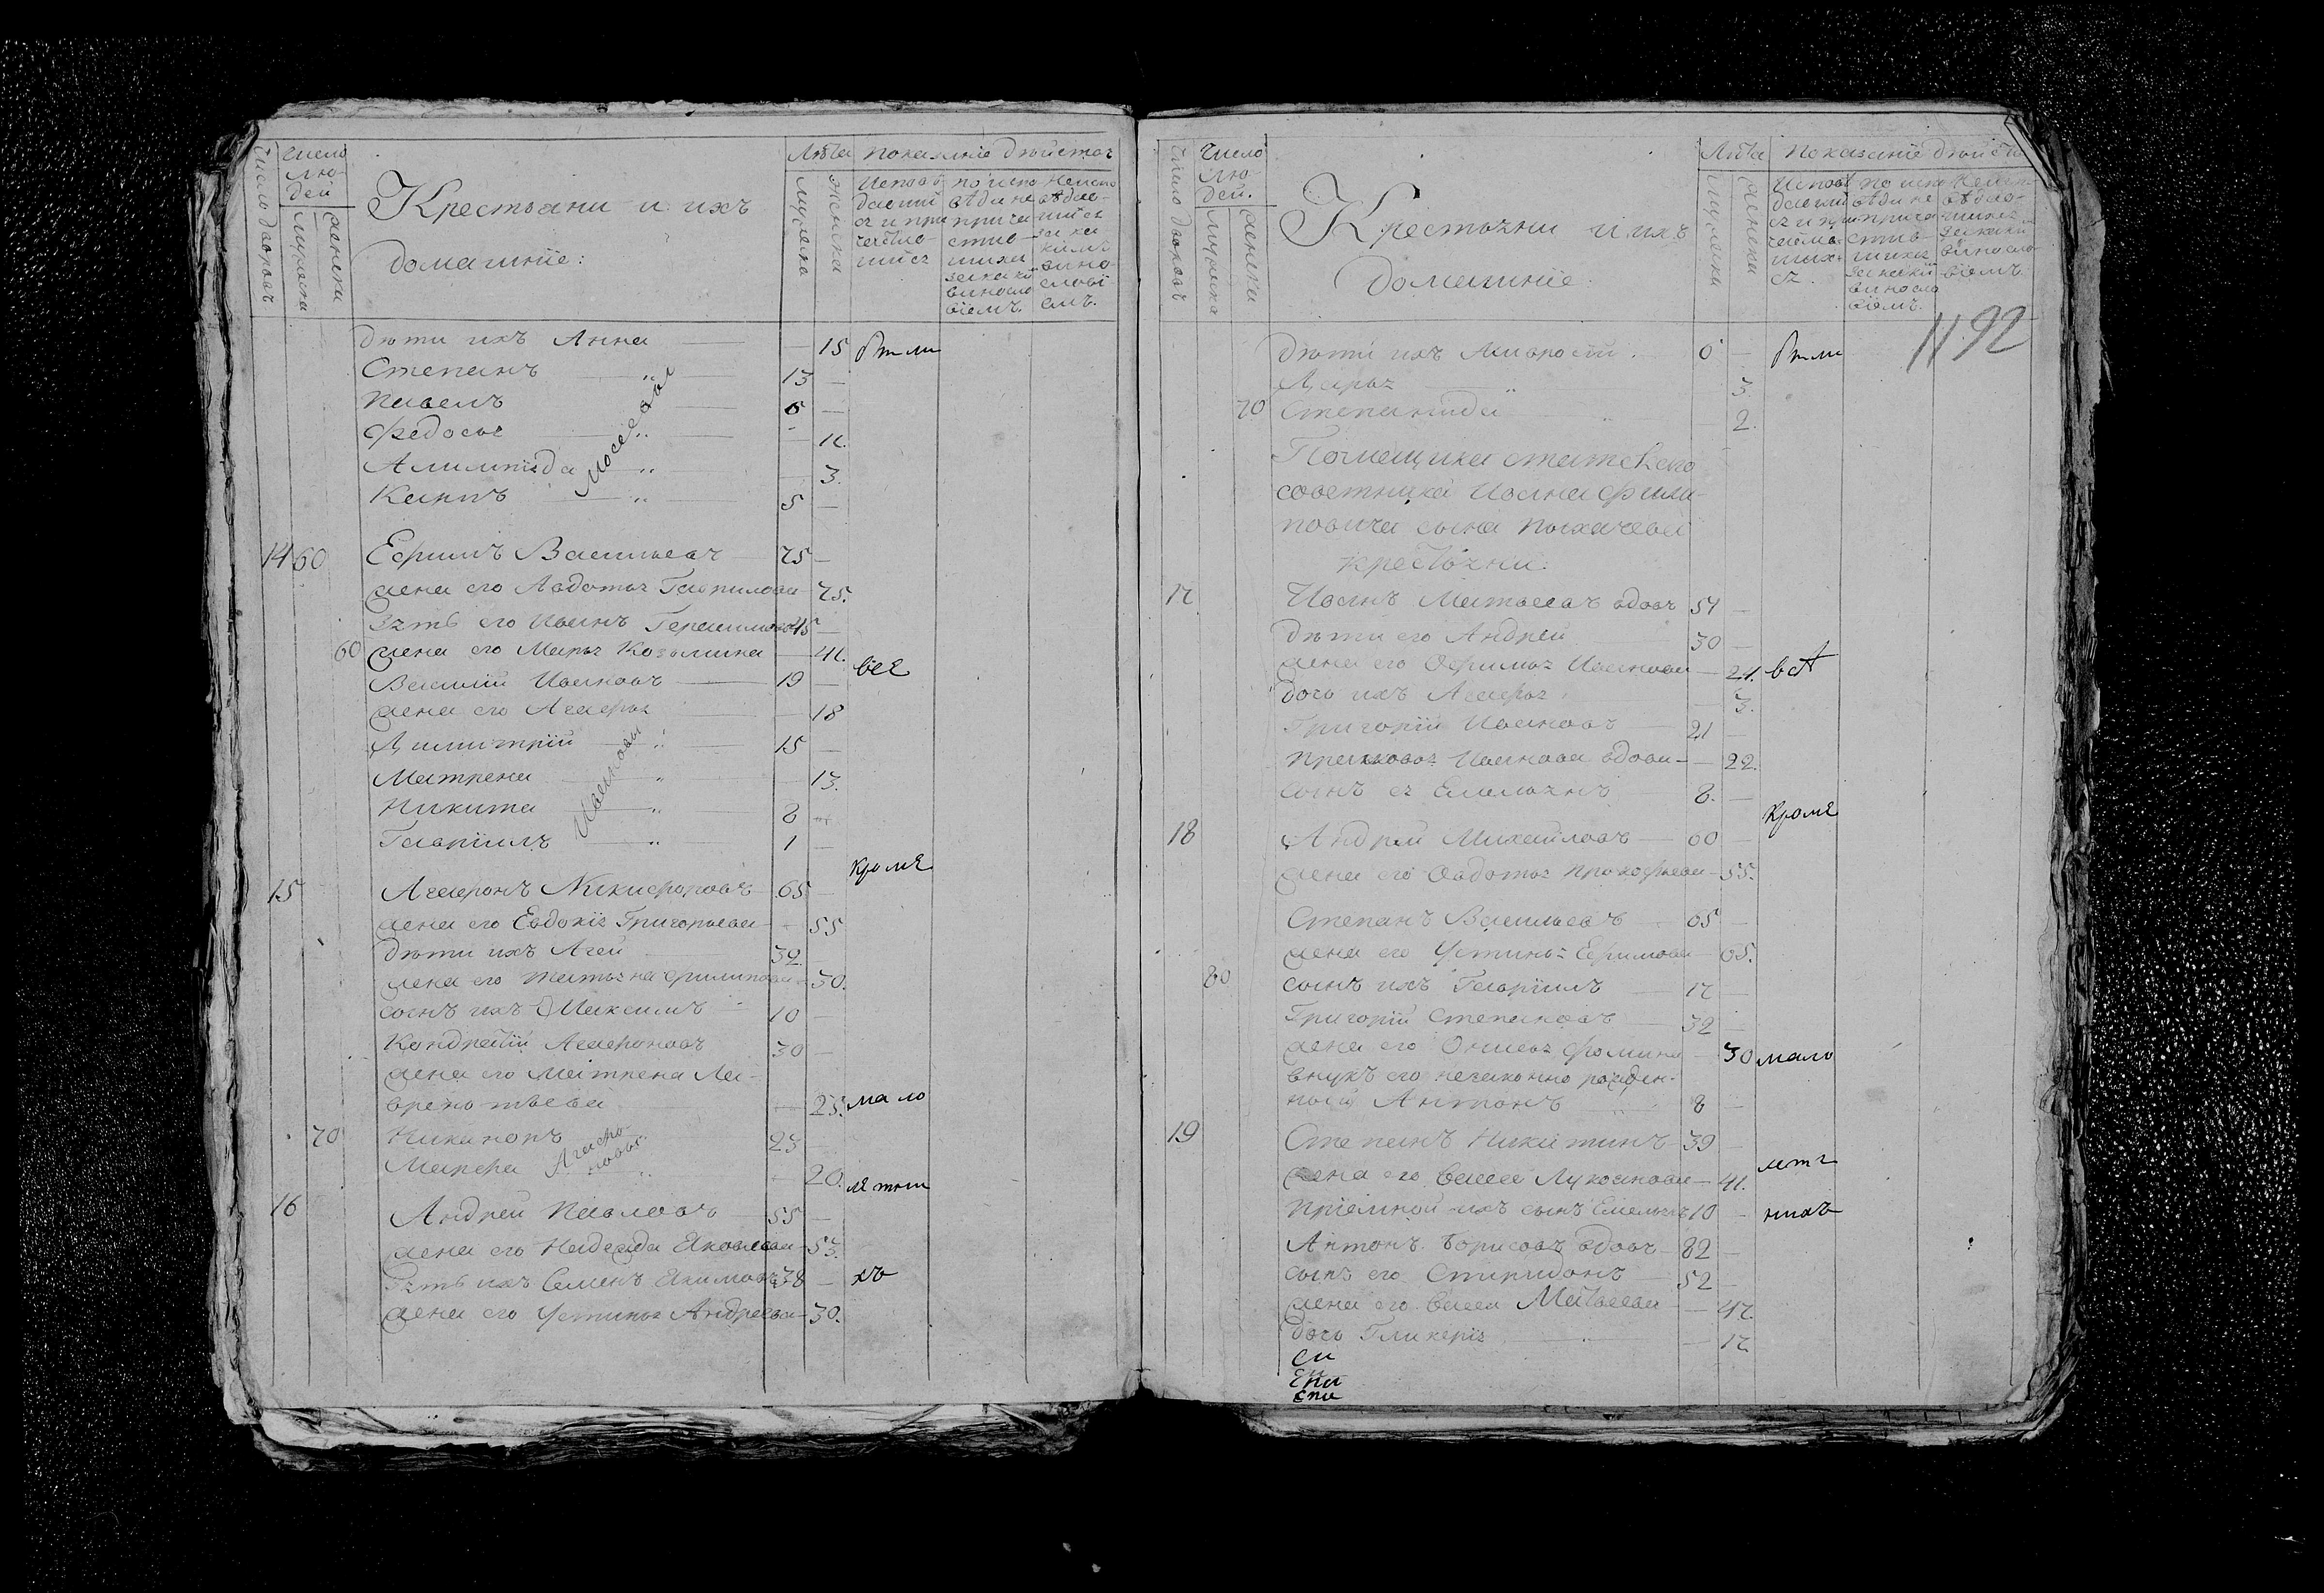 Число дворовъ
Число
лю-
дей
мужеска
женска
Крестьяни и ихъ
домашніе:
Лѣта
мужеска
женска
Показаніе дѣйства
Исповѣ
давши
ся и при
частив-
шися
дѣти ихъ Анна — 15 были
Степанъ " 13 —
Павелъ
Федосья "
Алимпіада " — 3.
Карпъ " 5 —
Мосеевы
14 60 Ефимъ Васильевъ 75 —
жена его Авдотья Гавриллова — 75.
зять его Иванъ Герасимовъ 45 —
60 жена его Марья Козьмина
всѣ
Василій Ивановъ 19 —
жена его Агафья — 18
Димитрій " 15 —
Матрена " 13.
Никита " 8 —
Гавріилъ " 1 —
Ивановы
кромѣ
15 Агафонъ Никифоровъ 65 —
жена его Евдокія Григорьева — 55
дѣти ихъ Агей 32 —
жена его Татьяна Филипова — 30.
сынъ ихъ Максимъ 10 —
Кондратій Агафоновъ 30 —
жена его Матрена Ла-
врентьева — 25. мало
70 Никаноръ 23 —
Марфа " — 20.
Агафо-
новы
лѣтни
16 Андрей Павловъ 55 —
жена его Надежда Яковлева — 53.
зять ихъ Семенъ Екимовъ 38 — хъ
жена его Устинья Андреева — 30.
Число дворовъ
Число
лю-
дей.
мужеска
женска
Крестьяни и ихъ
домашніе:
Лѣта
мужеска
женска
Показаніе дѣйств
1192
дѣти ихъ Амвросій. 6 — были
Дарья " 3.
70 Степанида " — 2.
Помещика статскаго
советника Иоанна Фили-
повича сына Пыхачева
крестьяни:
17 Иоанъ Матвеевъ вдовъ 54 —
дѣти его Андрей 30 —
жена его Офимья Иванова
всѣ
дочь ихъ Агафья — 3.
Григорій Ивановъ 21 —
Прасковья Иванова вдова — 22.
сынъ ея Емельянъ 8. —
кромѣ
18 Андрей Михайловъ 60 —
жена его Овдотья Прокофьева — 55.
Степанъ Васильевъ 65 —
жена его Устинья Ефимова — 65.
80 сынъ ихъ Гавріилъ 17 —
Григорій Степановъ 32 —
жена его Фомина — 30 мало
внукъ его незаконно рожден-
ный Антонъ " 8 —
19 Степанъ Никитинъ 39 —
лѣт
жена его Васса Лукоянова
пріемной ихъ сынъ Емельянъ 10 — нихъ
Антонъ Борисовъ вдовъ 82 —
сынъ его Спиридонъ 52 —
жена его Васса Матвеева — 47.
дочь Гликерія " — 17